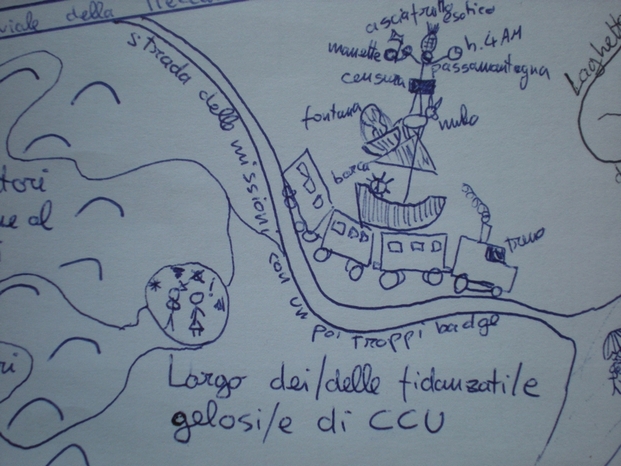 viale della
strada delle missioni con un
poi troppi badge
asciatrull gotico
manette
h. 4 AM
passamontagna
censura
fontana
mulo
barca
treno
Laghetto
tori
e al
i
ri
Largo dei/delle fidanzati/e
gelosi/e di CCU